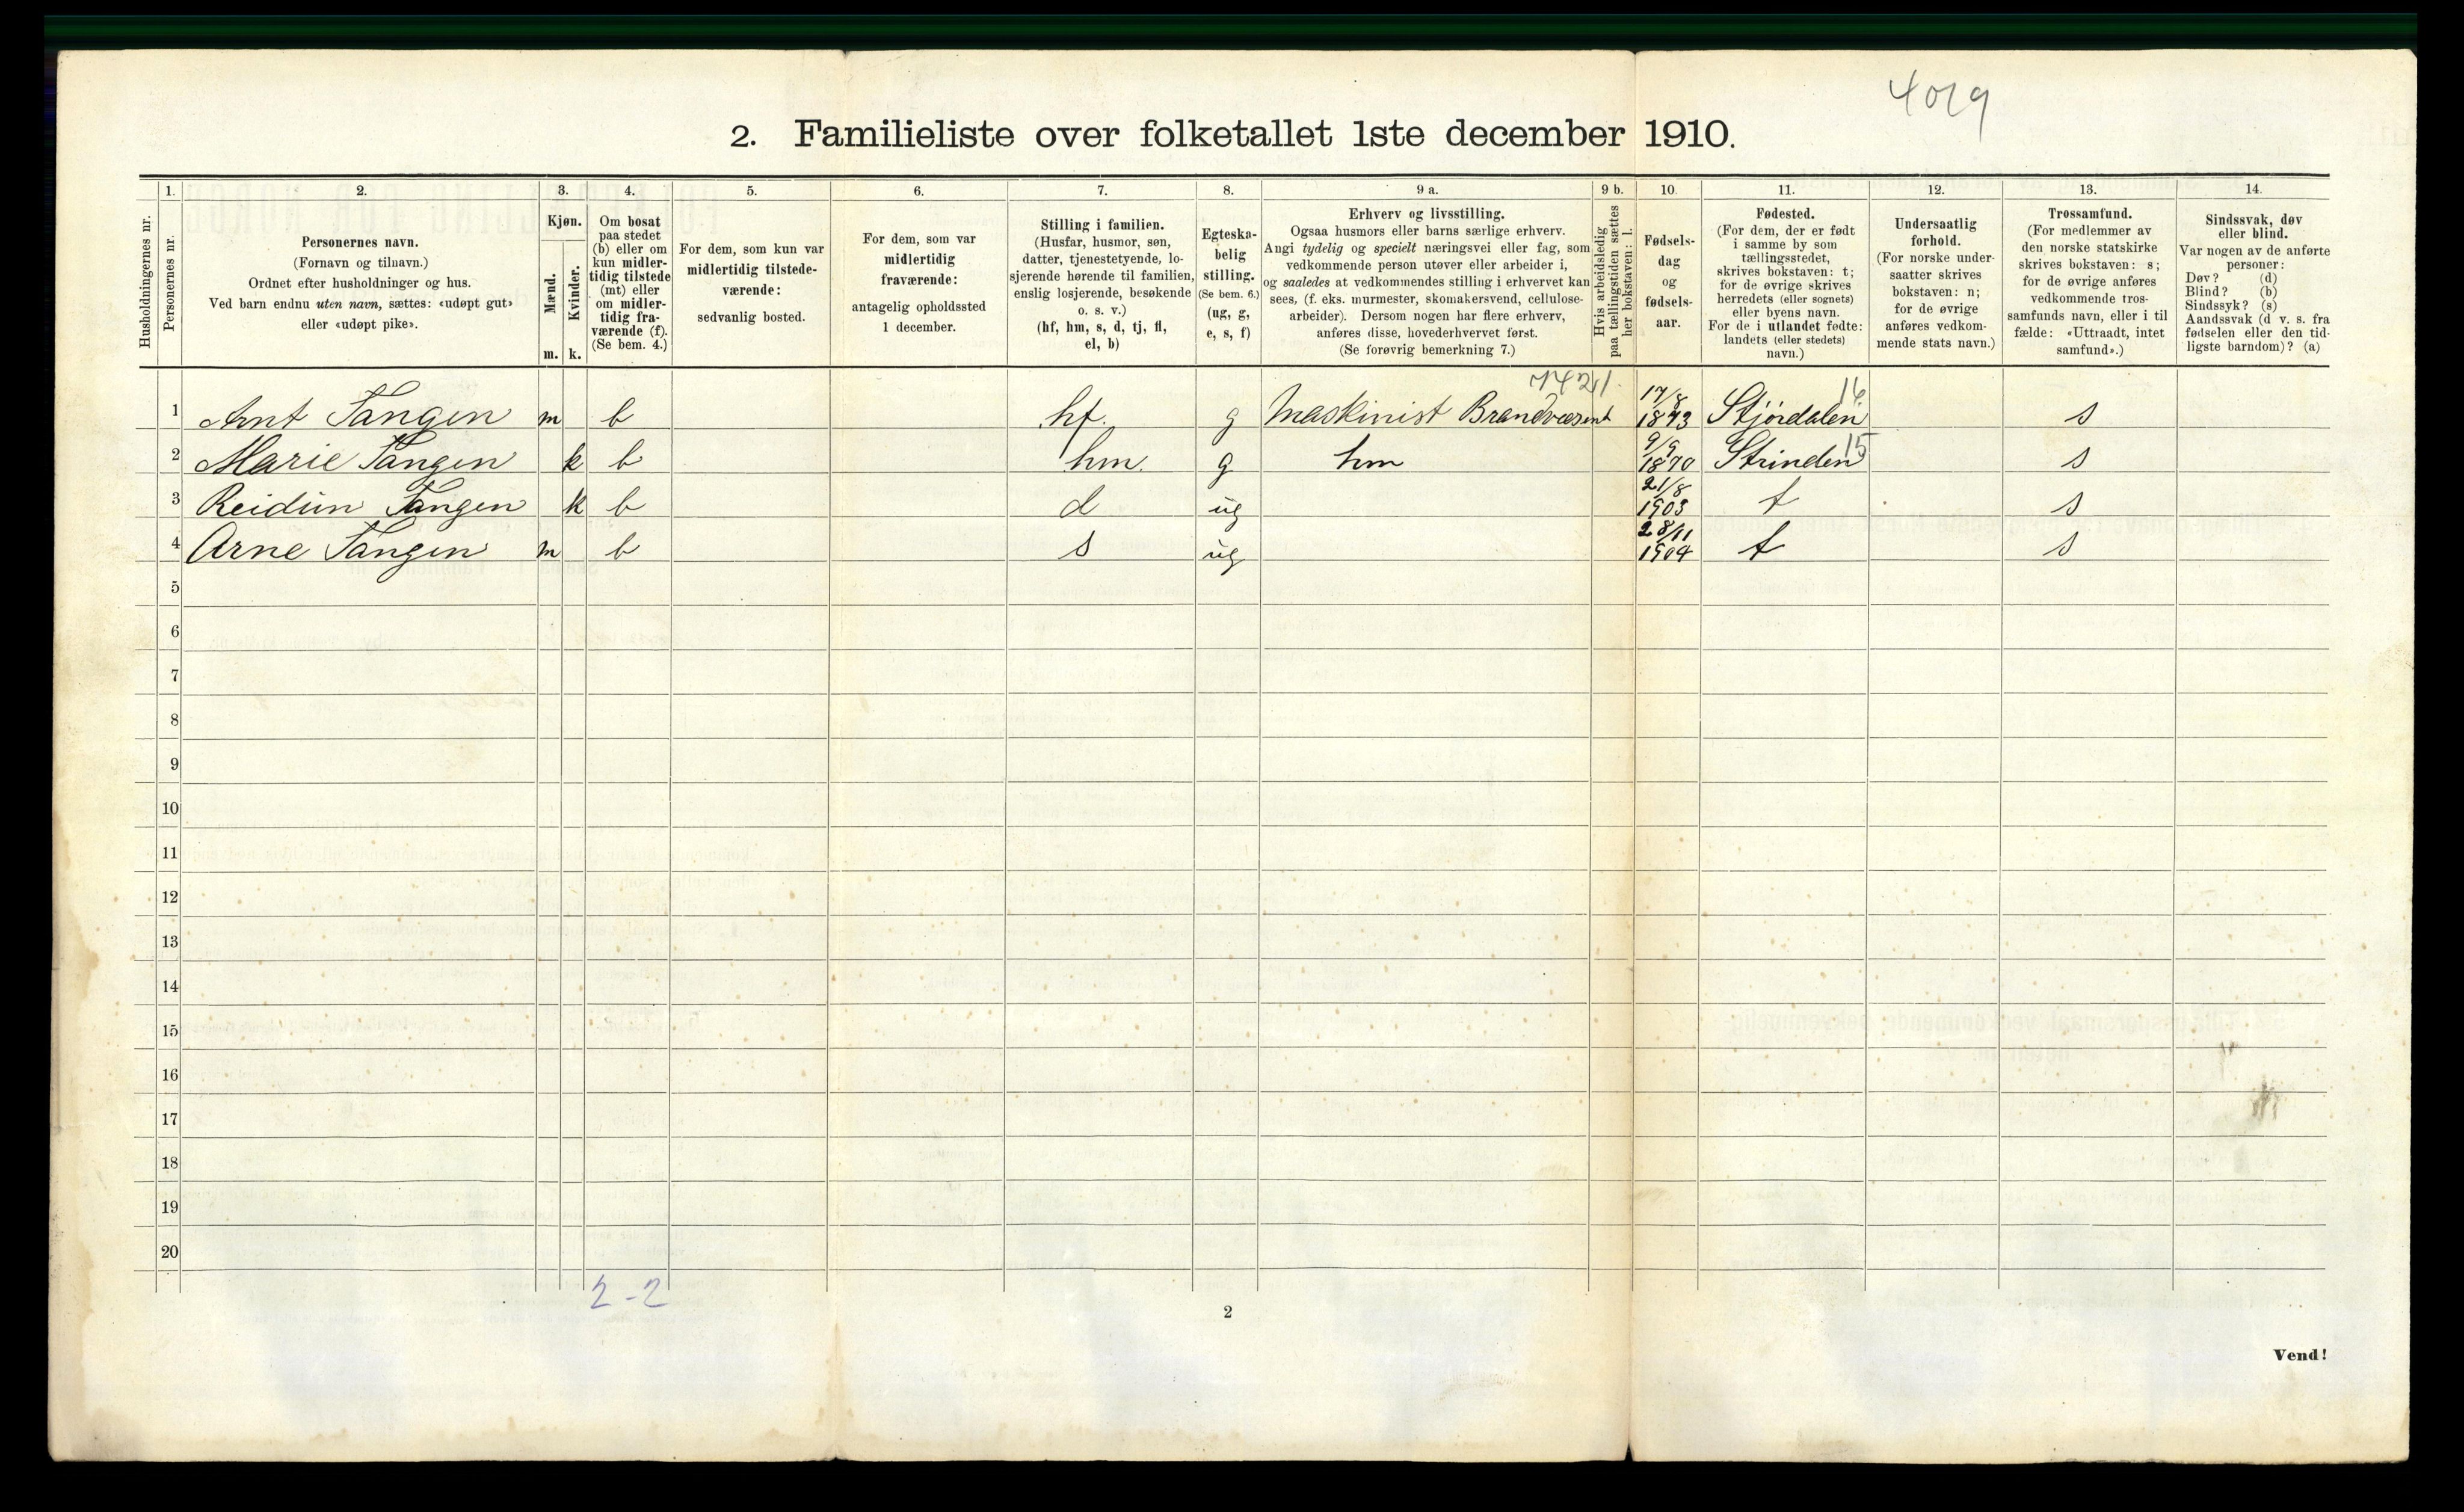 4029
2. Familieliste over folketallet 1ste december 1910.
Husholdningernes nr.
1.
Personernes nr.
2.
Personernes navn.
(Fornavn og tilnavn.)
Ordnet efter husholdninger og hus.
Ved barn endnu uten navn, sættes: «udøpt gut»
eller «udøpt pike».
3.
Kjøn.
Mænd.
m.
Kvinder.
k.
4.
Om bosat
paa stedet
(b) eller om
kun midler-
tidig tilstede
(mt) eller
om midler-
tidig fra-
værende (f).
(Se bem. 4.)
5.
For dem, som kun var
midlertidig tilstede-
værende:
sedvanlig bosted.
6.
For dem, som var
midlertidig
fraværende:
antagelig opholdssted
1 december.
7.
Stilling i familien.
(Husfar, husmor, søn,
datter, tjenestetyende, lo-
sjerende hørende til familien,
enslig losjerende, besøkende
o. s. v.)
(hf, hm, s, d, tj, fl,
el, b)
8.
Egteska-
belig
stilling.
(Se bem. 6.)
(ug, g,
e, s, f)
9 a.
Erhverv og livsstilling.
Ogsaa husmors eller barns særlige erhverv.
Angi tydelig og specielt næringsvei eller fag, som
vedkommende person utøver eller arbeider i,
og saaledes at vedkommendes stilling i erhvervet kan
sees, (f. eks. murmester, skomakersvend, cellulose-
arbeider). Dersom nogen har flere erhverv,
anføres disse, hovederhvervet først.
(Se forøvrig bemerkning 7.)
9 b.
Hvis arbeidsledig
paa tællingstiden sættes
her bokstaven: l.
10.
Fødsels-
dag
og
fødsels-
aar.
11.
Fødested.
(For dem, der er født
i samme by som
tællingsstedet,
skrives bokstaven: t;
for de øvrige skrives
herredets (eller sognets)
eller byens navn.
For de i utlandet fødte:
landets (eller stedets)
navn.)
12.
Undersaatlig
forhold.
(For norske under-
saatter skrives
bokstaven: n;
for de øvrige
anføres vedkom-
mende stats navn.)
13.
Trossamfund.
(For medlemmer av
den norske statskirke
skrives bokstaven: s;
for de øvrige anføres
vedkommende tros-
samfunds navn, eller i til
fælde: «Uttraadt, intet
samfund».)
14.
Sindssvak, døv
eller blind.
Var nogen av de anførte
personer:
Døv? (d)
Blind? (b)
Sindssyk? (s)
Aandssvak (d v. s. fra
fødselen eller den tid-
ligste barndom)? (a)
1 Arnt Tangen m b hf. g Maskinist Brandvæsent 17/8 1873 Stjørdalen 16 s
2 Marie Tangen k b hm. g hm 9/9 1870 Strinden 15 s
3 Reidun Tangen k b d ug 21/8 1903 t s
4 Arne Tangen m b s ug 28/11 1904 t s
5
6
7
8
9
10
11
12
13
14
15
16
17
18
19
20
2-2
2
Vend!